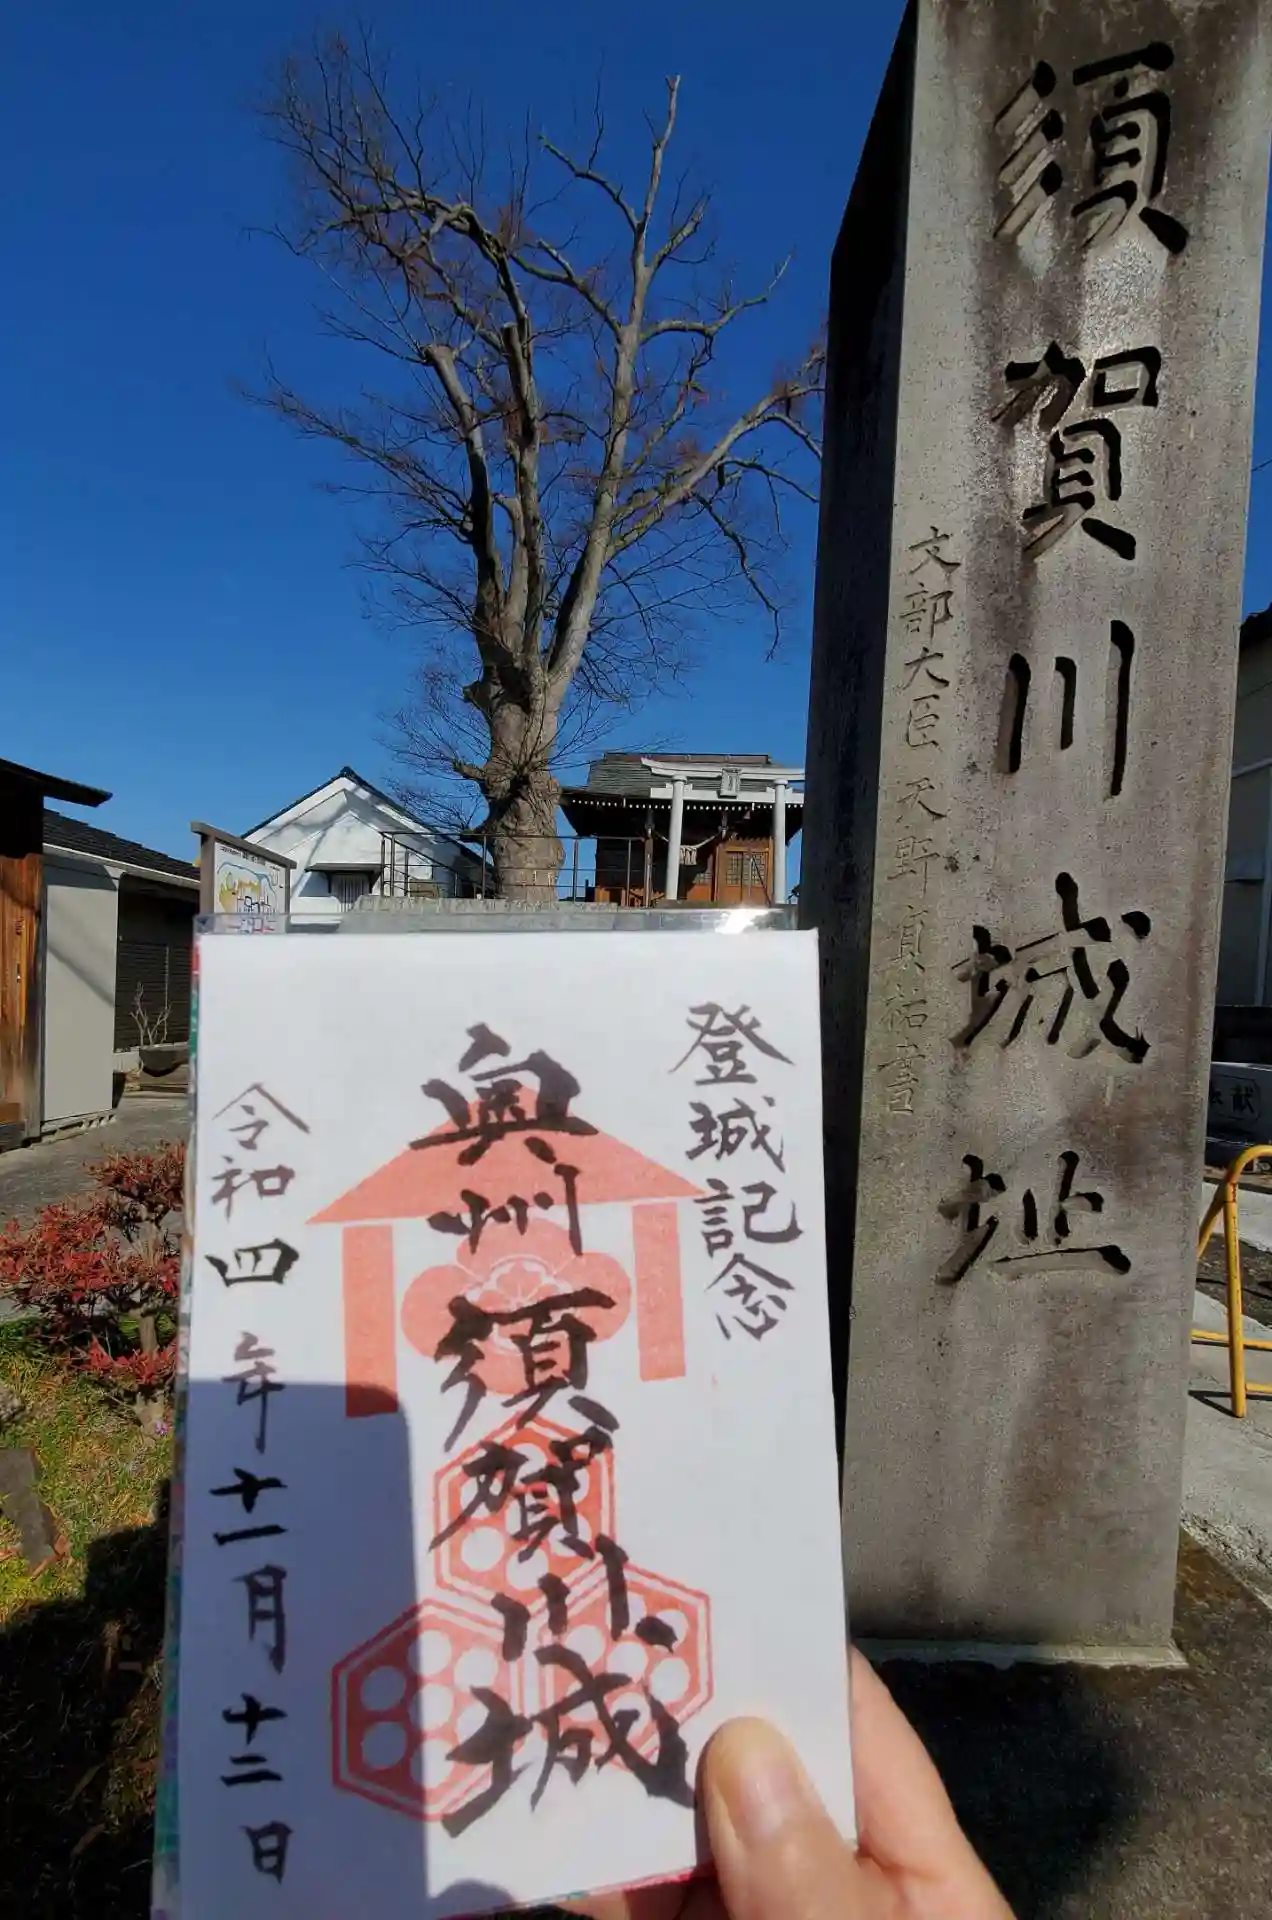 須賀川城址
文部大臣天野貞祐書
登城記念
奥州須賀川城
令和四年十一月十二日
献